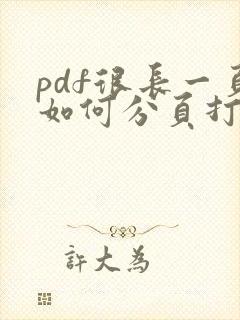 pdf很長一頁
如何分頁打
許大為